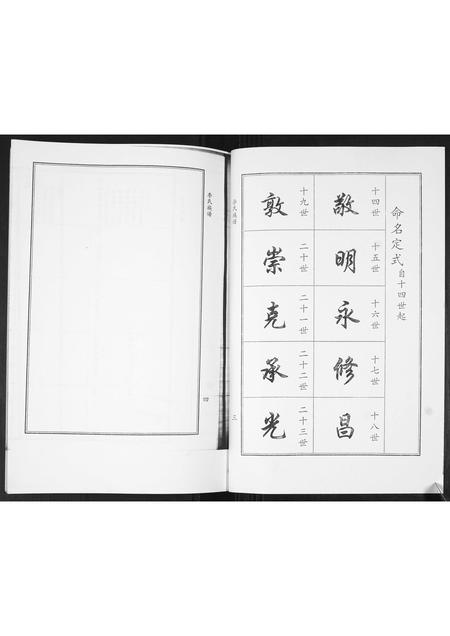 命名定式 自十四世起
十四世 敬
十五世 明
十六世 永
十七世 修
十八世 昌
十九世 敦
二十世 崇
二十一世 克
二十二世 承
二十三世 光
李氏族谱
三
李氏族谱
四